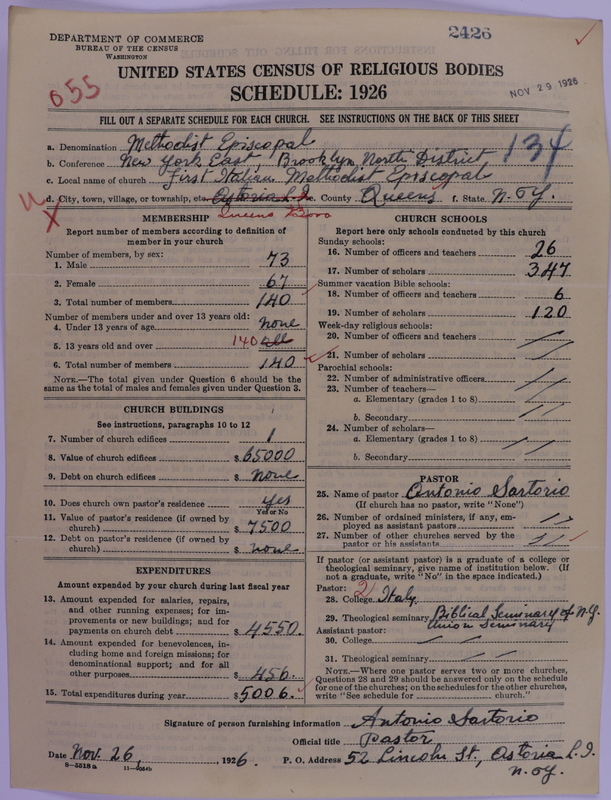 2426
DEPARTMENT OF COMMERCE
BUREAU OF THE CENSUS
WASHINGTON
UNITED STATES CENSUS OF RELIGIOUS BODIES
SCHEDULE: 1926
NOV 29 1926
655
FILL OUT A SEPARATE SCHEDULE FOR EACH CHURCH. SEE INSTRUCTIONS ON THE BACK OF THIS SHEET
134
a. Denomination Methodist Episcopal
b. Conference New York East, Brooklyn North District
c. Local name of church First Italian Methodist Episcopal
d. City, town, village, or township, etc. Astoria L.I. e. County Queens f. State N.Y.
Queens Boro
MEMBERSHIP
Report number of members according to definition of
member in your church
Number of members, by sex:
1. Male 73
2. Female 67
3. Total number of members 140
Number of members under and over 13 years old:
4. Under 13 years of age none
5. 13 years old and over 140 all
6. Total number of members 140
NOTE.—The total given under Question 6 should be
same as the total of males and females given under Question 3.
CHURCH BUILDINGS
See instructions, paragraphs 10 to 12
7. Number of church edifices 1
8. Value of church edifices $ 65000
9. Debt on church edifices $ none
10. Does church own pastor's residence yes
Yes or No
11. Value of pastor's residence (if owned by
church) $ 7500
12. Debt on pastor's residence (if owned by
church) $ none
EXPENDITURES
Amount expended by your church during last fiscal year
13. Amount expended for salaries, repairs,
and other running expenses; for im-
provements or new buildings; and for
payments on church debt $ 4550.
14. Amount expended for benevolences, in-
cluding home and foreign missions; for
denominational support; and for all
other purposes $ 456.
15. Total expenditures during year $ 5006.
CHURCH SCHOOLS
Report here only schools conducted by this church
Sunday schools:
16. Number of officers and teachers 26
17. Number of scholars 347
Summer vacation Bible schools:
18. Number of officers and teachers 6
19. Number of scholars 120
Week-day religious schools:
20. Number of officers and teachers
21. Number of scholars
Parochial schools:
22. Number of administrative officers
23. Number of teachers—
a. Elementary (grades 1 to 8)
b. Secondary
24. Number of scholars—
a. Elementary (grades 1 to 8)
b. Secondary
PASTOR
25. Name of pastor Antonio Sartorio
(If church has no pastor, write "None")
26. Number of ordained ministers, if any, em-
ployed as assistant pastors
27. Number of other churches served by the
pastor or his assistants
If pastor (or assistant pastor) is a graduate of a college or
theological seminary, give name of institution below. (If
not a graduate, write "No" in the space indicated.)
Pastor: 2
28. College Italy
29. Theological seminary Biblical Seminary of N.Y.
Union Seminary
Assistant pastor:
30. College
31. Theological seminary
NOTE.—Where one pastor serves two or more churches,
Questions 28 and 29 should be answered only on the schedule
for one of the churches; on the schedules for the other churches,
write "See schedule for church."
Signature of person furnishing information Antonio Sartorio
Official title Pastor
Date Nov. 26, 1926. P. O. Address 52 Lincoln St., Astoria L.I.
N.Y.
8-5518a